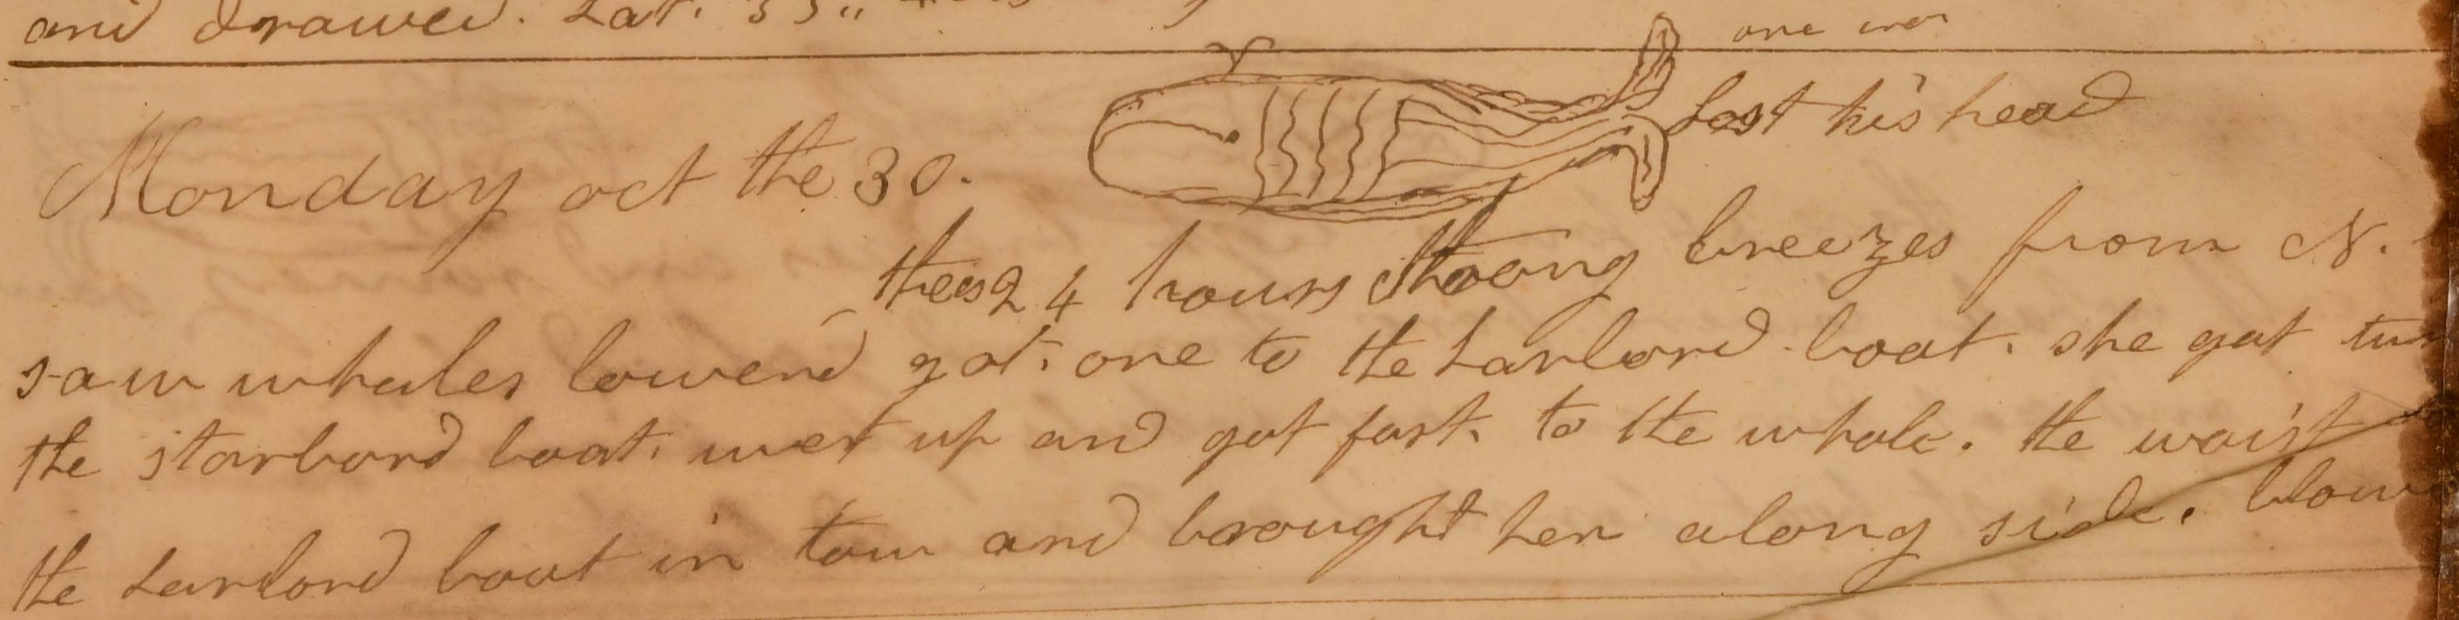 and drawed. Lat. 33"
one
Lost his head
Monday oct the 30.
thes 24 hours Stroong breezes from N.
saw whales lowerd got one to the larbord boat. she got
the starbord boat. wet up and got fast. to the whale. the waist
the larbord boat in tow and brought her along side.